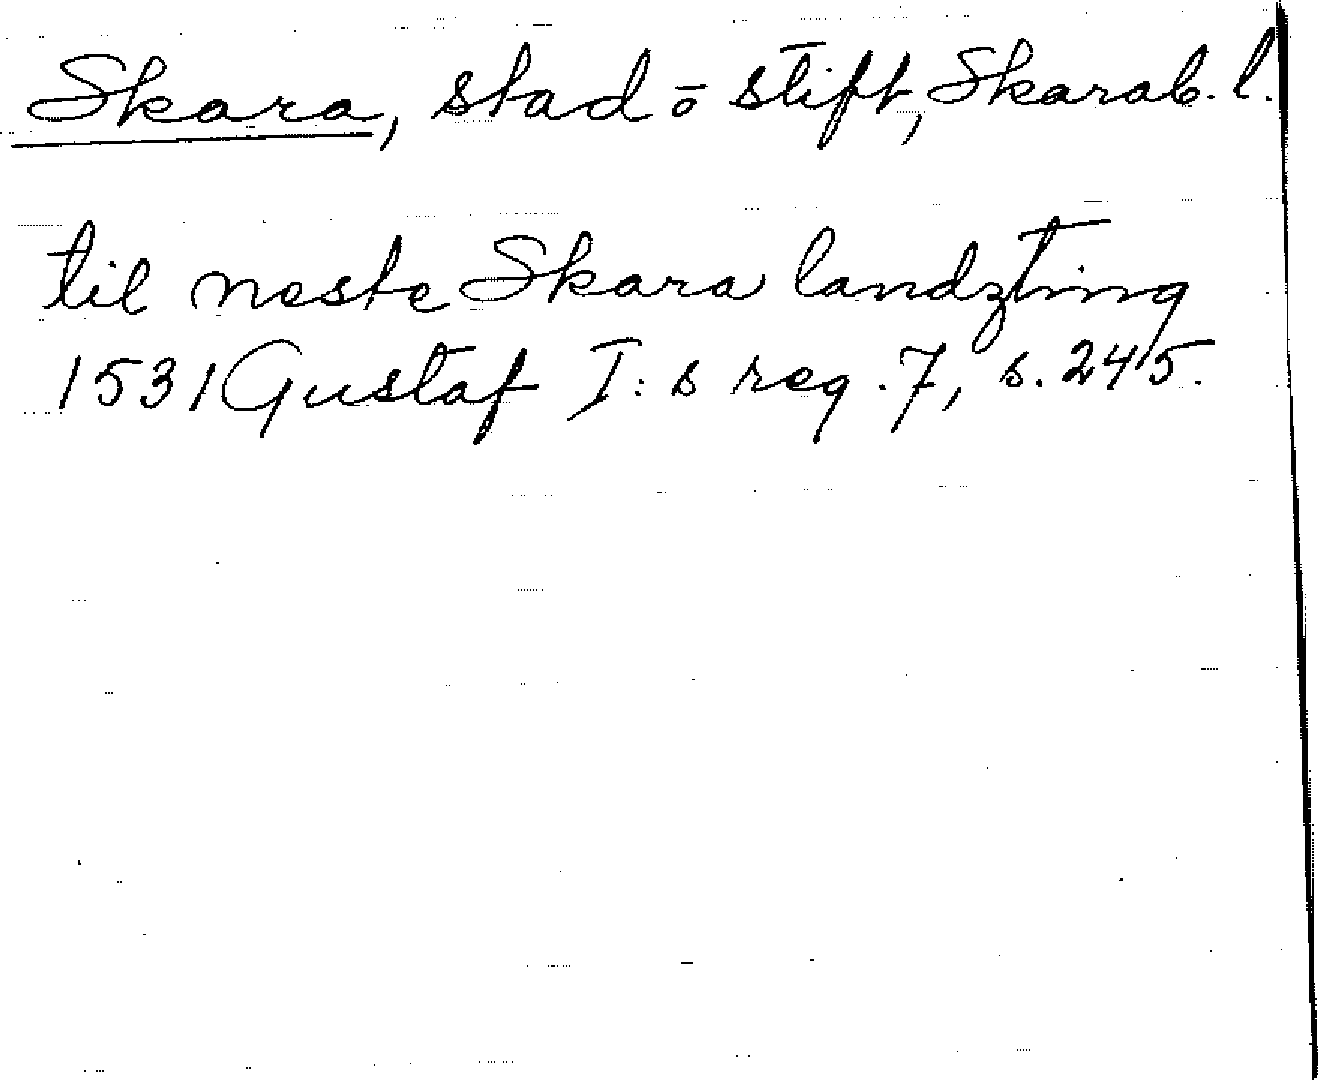 Skara, stad ō stift, Skarab. l.
til neste Skara landzting
1531 Gustaf I:s reg. 7, s. 245.